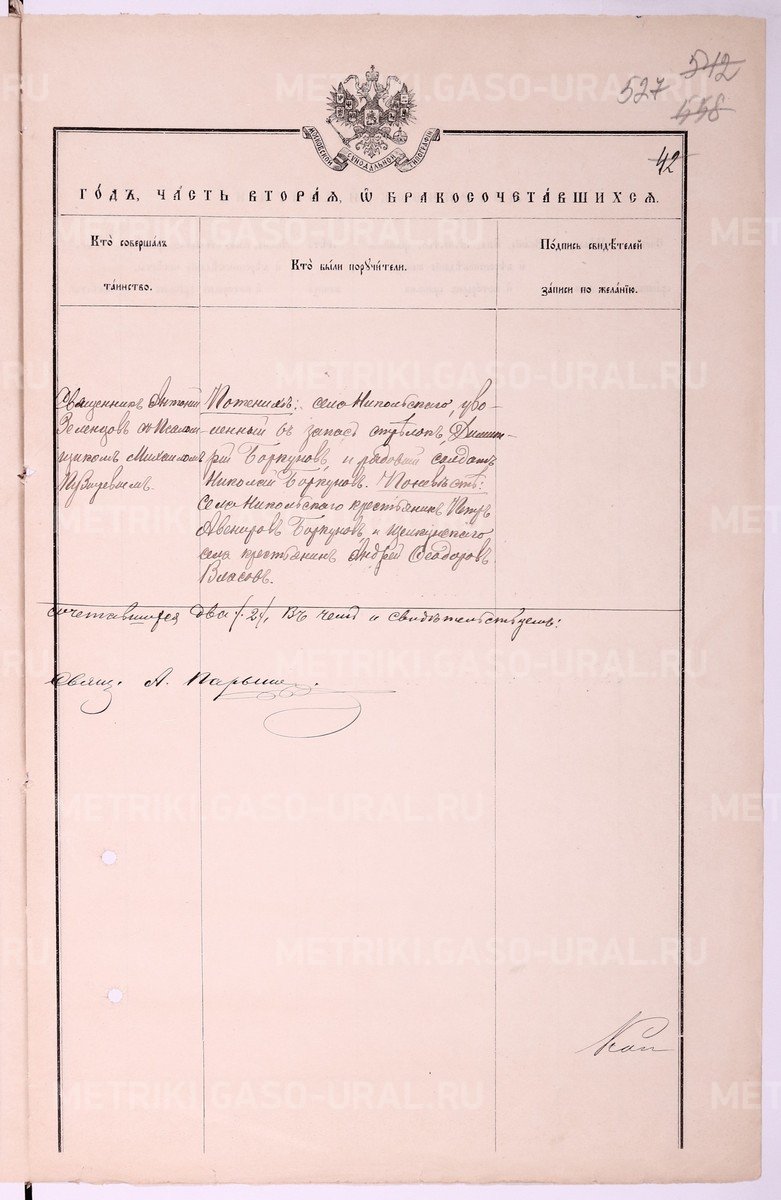 527 542
558
МОСКОВСКОЙ СѴНОДАЛЬНОЙ ТИПОГРАФІИ
42
ГО́ДЪ, ЧА́СТЬ ВТОРА́Я, Ѡ҆ БРАКОСОЧЕТА́ВШИХСЯ.
Кто̀ соверша́лъ
та́инство.
Кто̀ бы́ли порꙋчи́тели.
По́дпись свидѣ́телей
за́писи по жела́нїю.
Священникъ Антоній
Зеленцовъ съ Псалом-
щикомъ Михаиломъ
По женихѣ: села Никольскаго, уво-
ленный въ запасъ стрѣлокъ, Димит-
рій Боркуновъ, и рядовой солдатъ
Николай Боркуновъ. По невѣстѣ:
села Никольскаго крестьянинъ Петръ
Авенировъ Боркуновъ и Щелкунскаго
села крестьянинъ Андрей Ѳеодоровъ
Власовъ.
сочетавшихся два /2/, въ чемъ и свидѣтельствуемъ:
Свящ. А.
METRIKI.GASO-URAL.RU